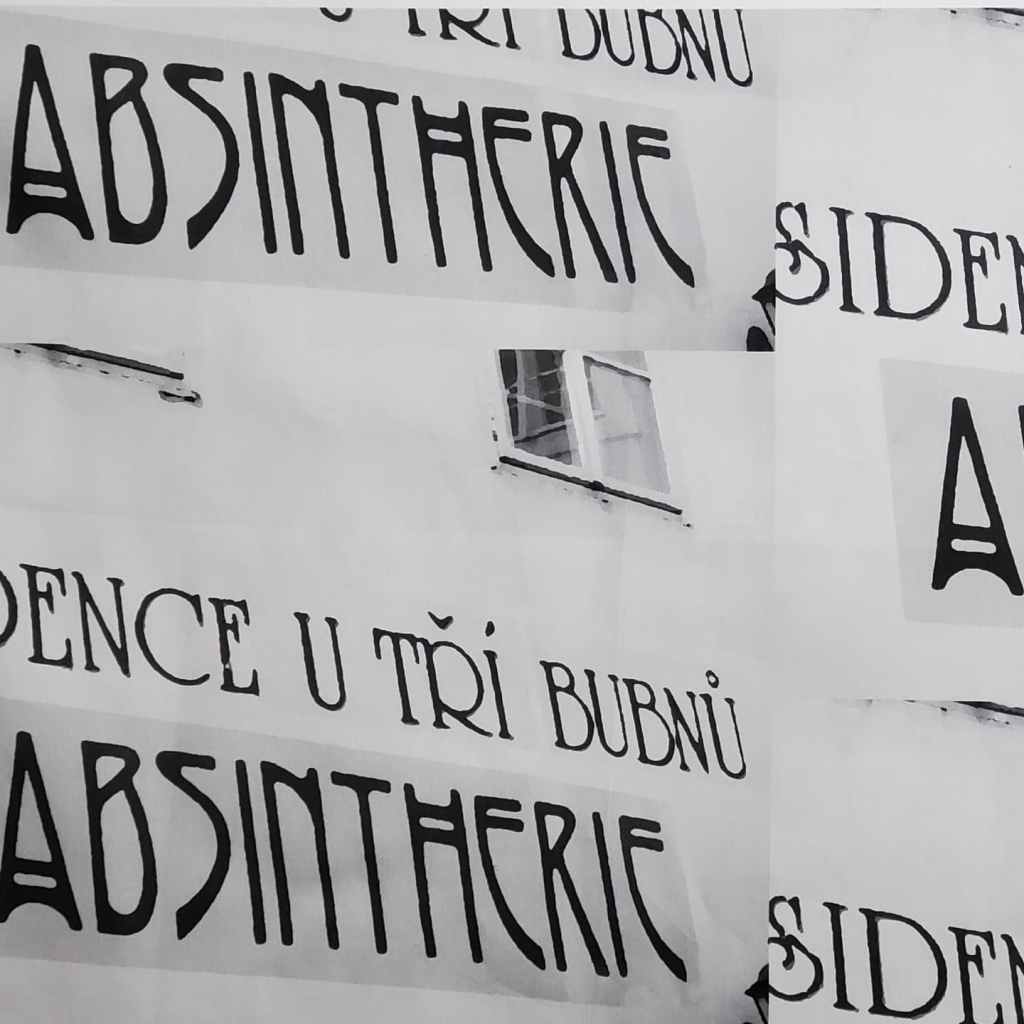 U TŘÍ BUBNŮ
ABSINTHERIE
SIDEN
A
DENCE U TŘÍ BUBNŮ
ABSINTHERIE
SIDEN